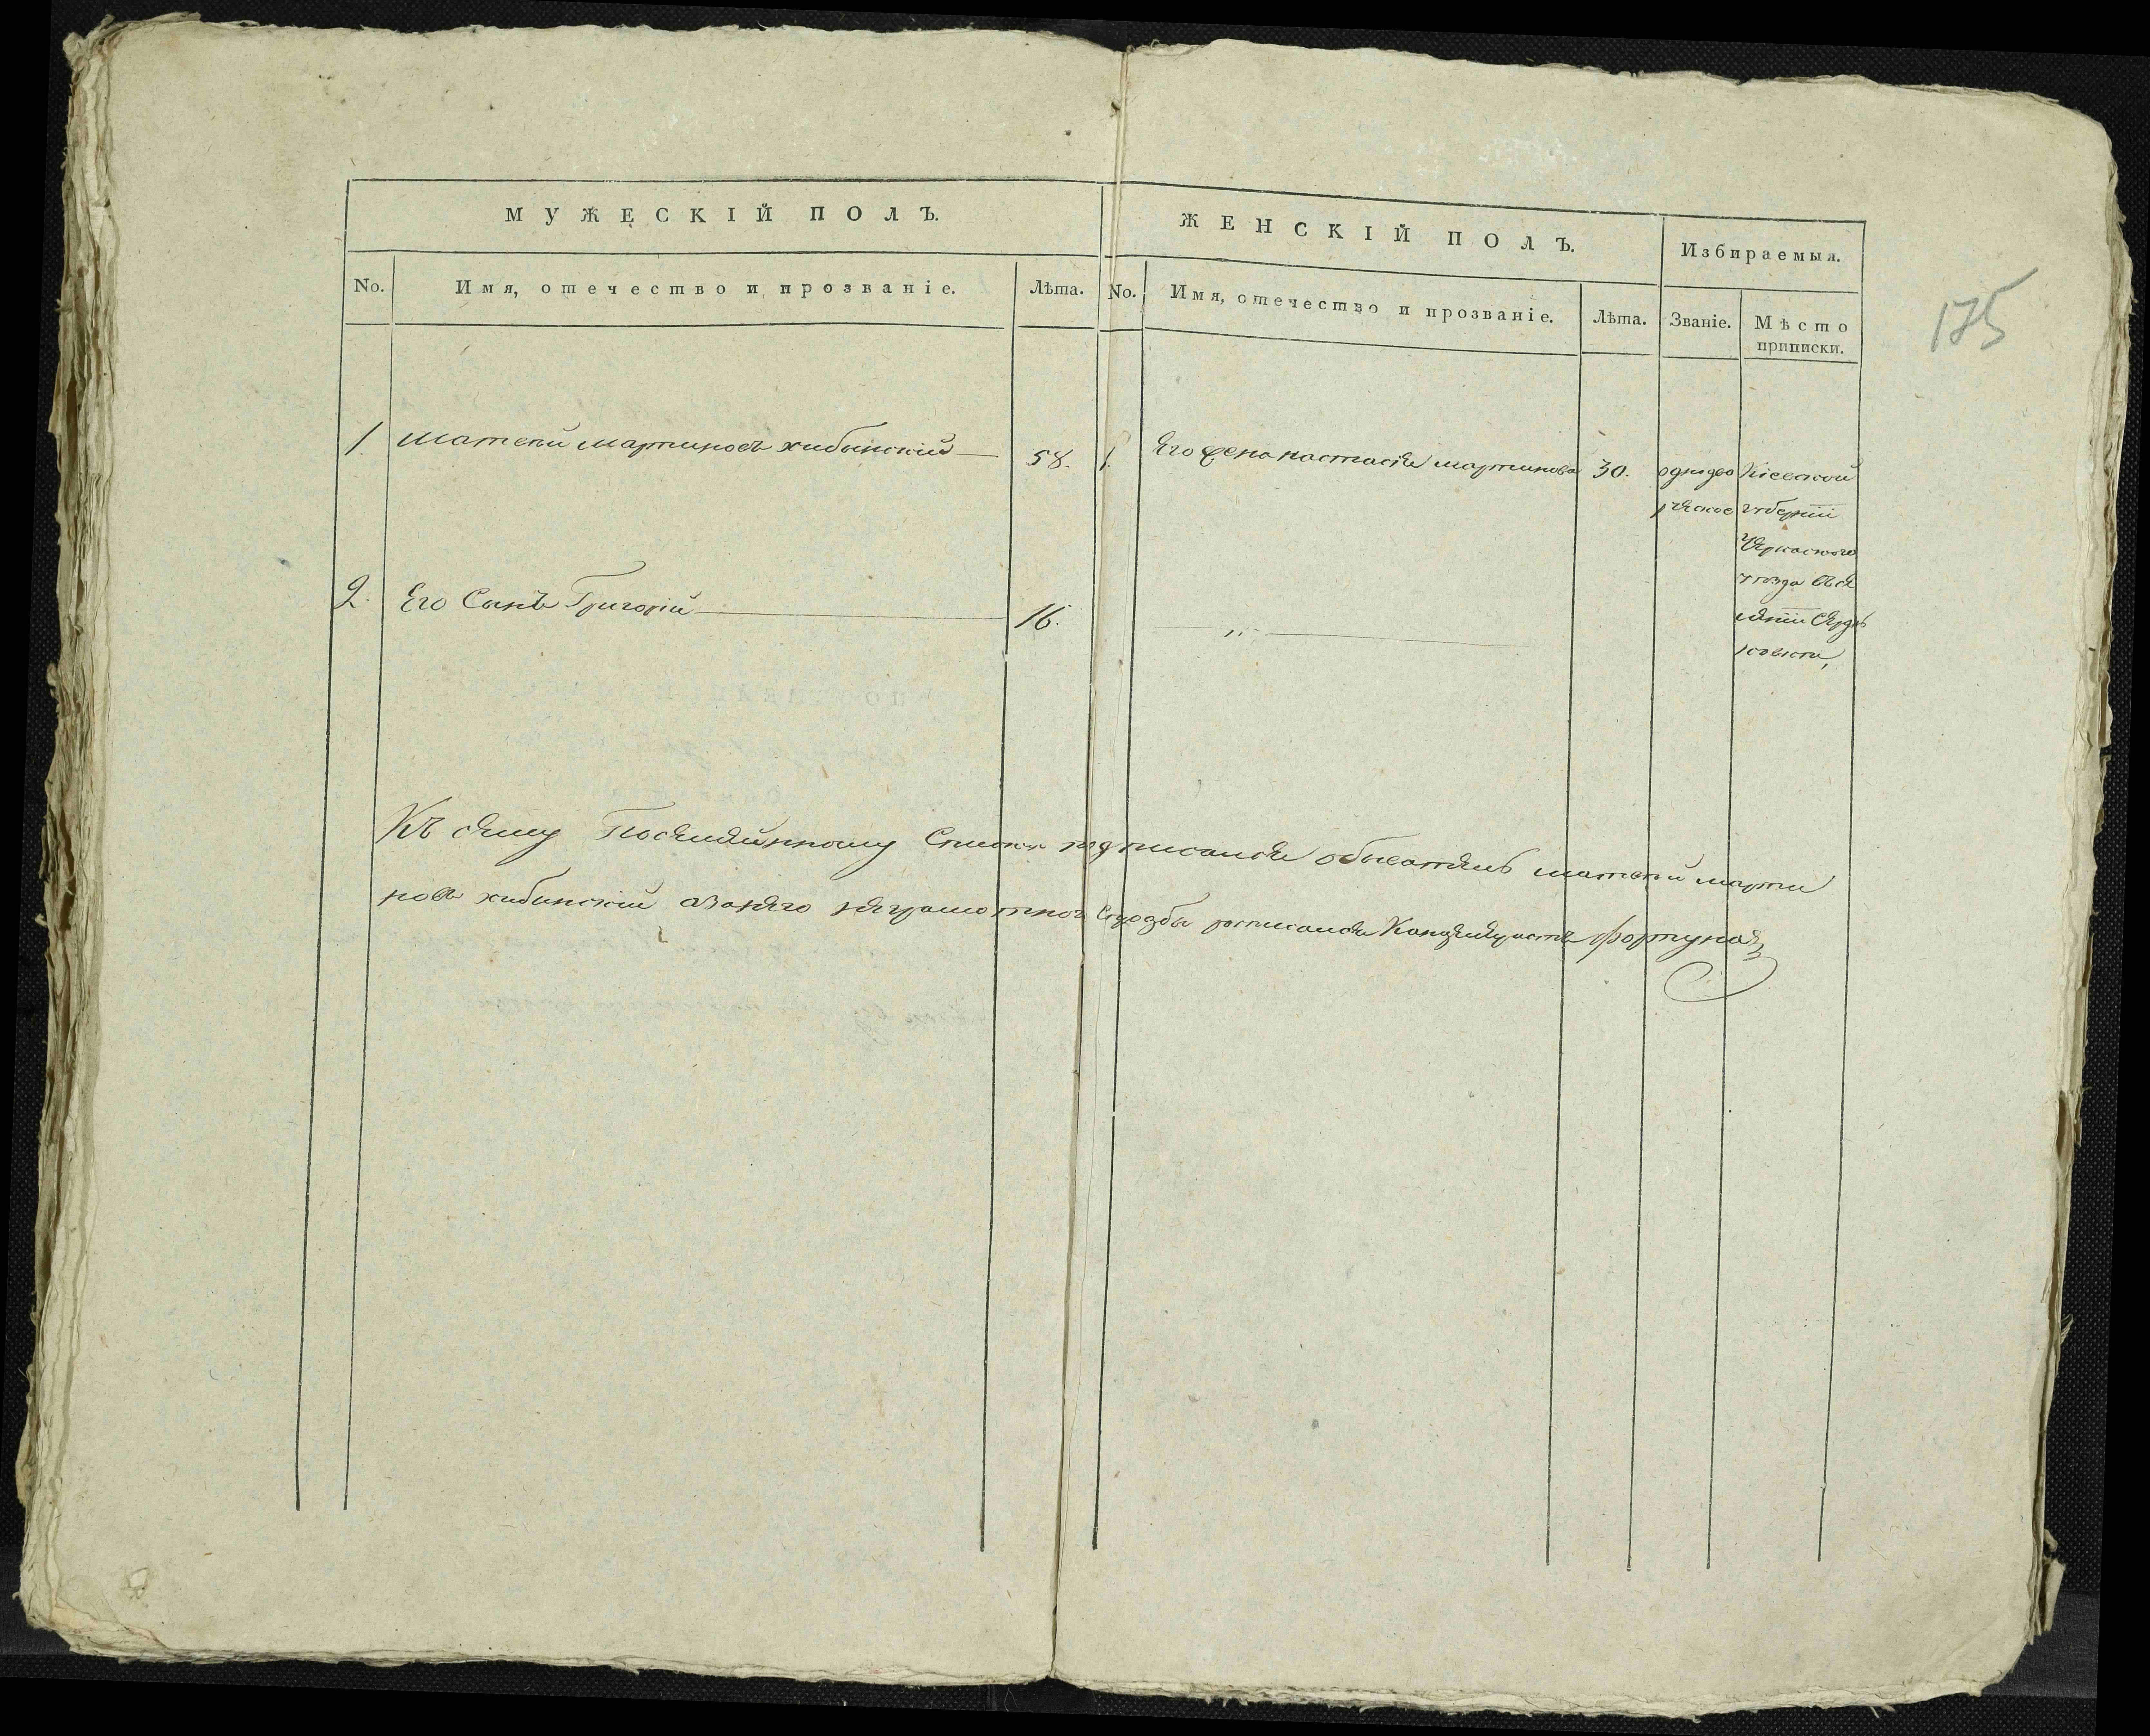 МУЖЕСКІЙ ПОЛЪ.
ЖЕНСКІЙ ПОЛЪ.
Избираемыя.
No.
Имя, отечество и прозваніе.
Лѣта.
No.
Имя, отечество и прозваніе.
Лѣта.
Званіе.
Мѣсто
приписки.
175
1.
Матвѣй Мартиновъ Хибынскій
58.
1.
Его жена настасія мартинова
30.
однодво
рческое
Кіевской
губерніи
Черкаского
уѣзда въ се
леніи
2.
Его Сынъ Григорій
16.
Къ сему Посемейнному Списку подписался обыватель матвѣй марти
новъ хибинскій азанего неграмотного его прозбы росписался Канцеляристъ